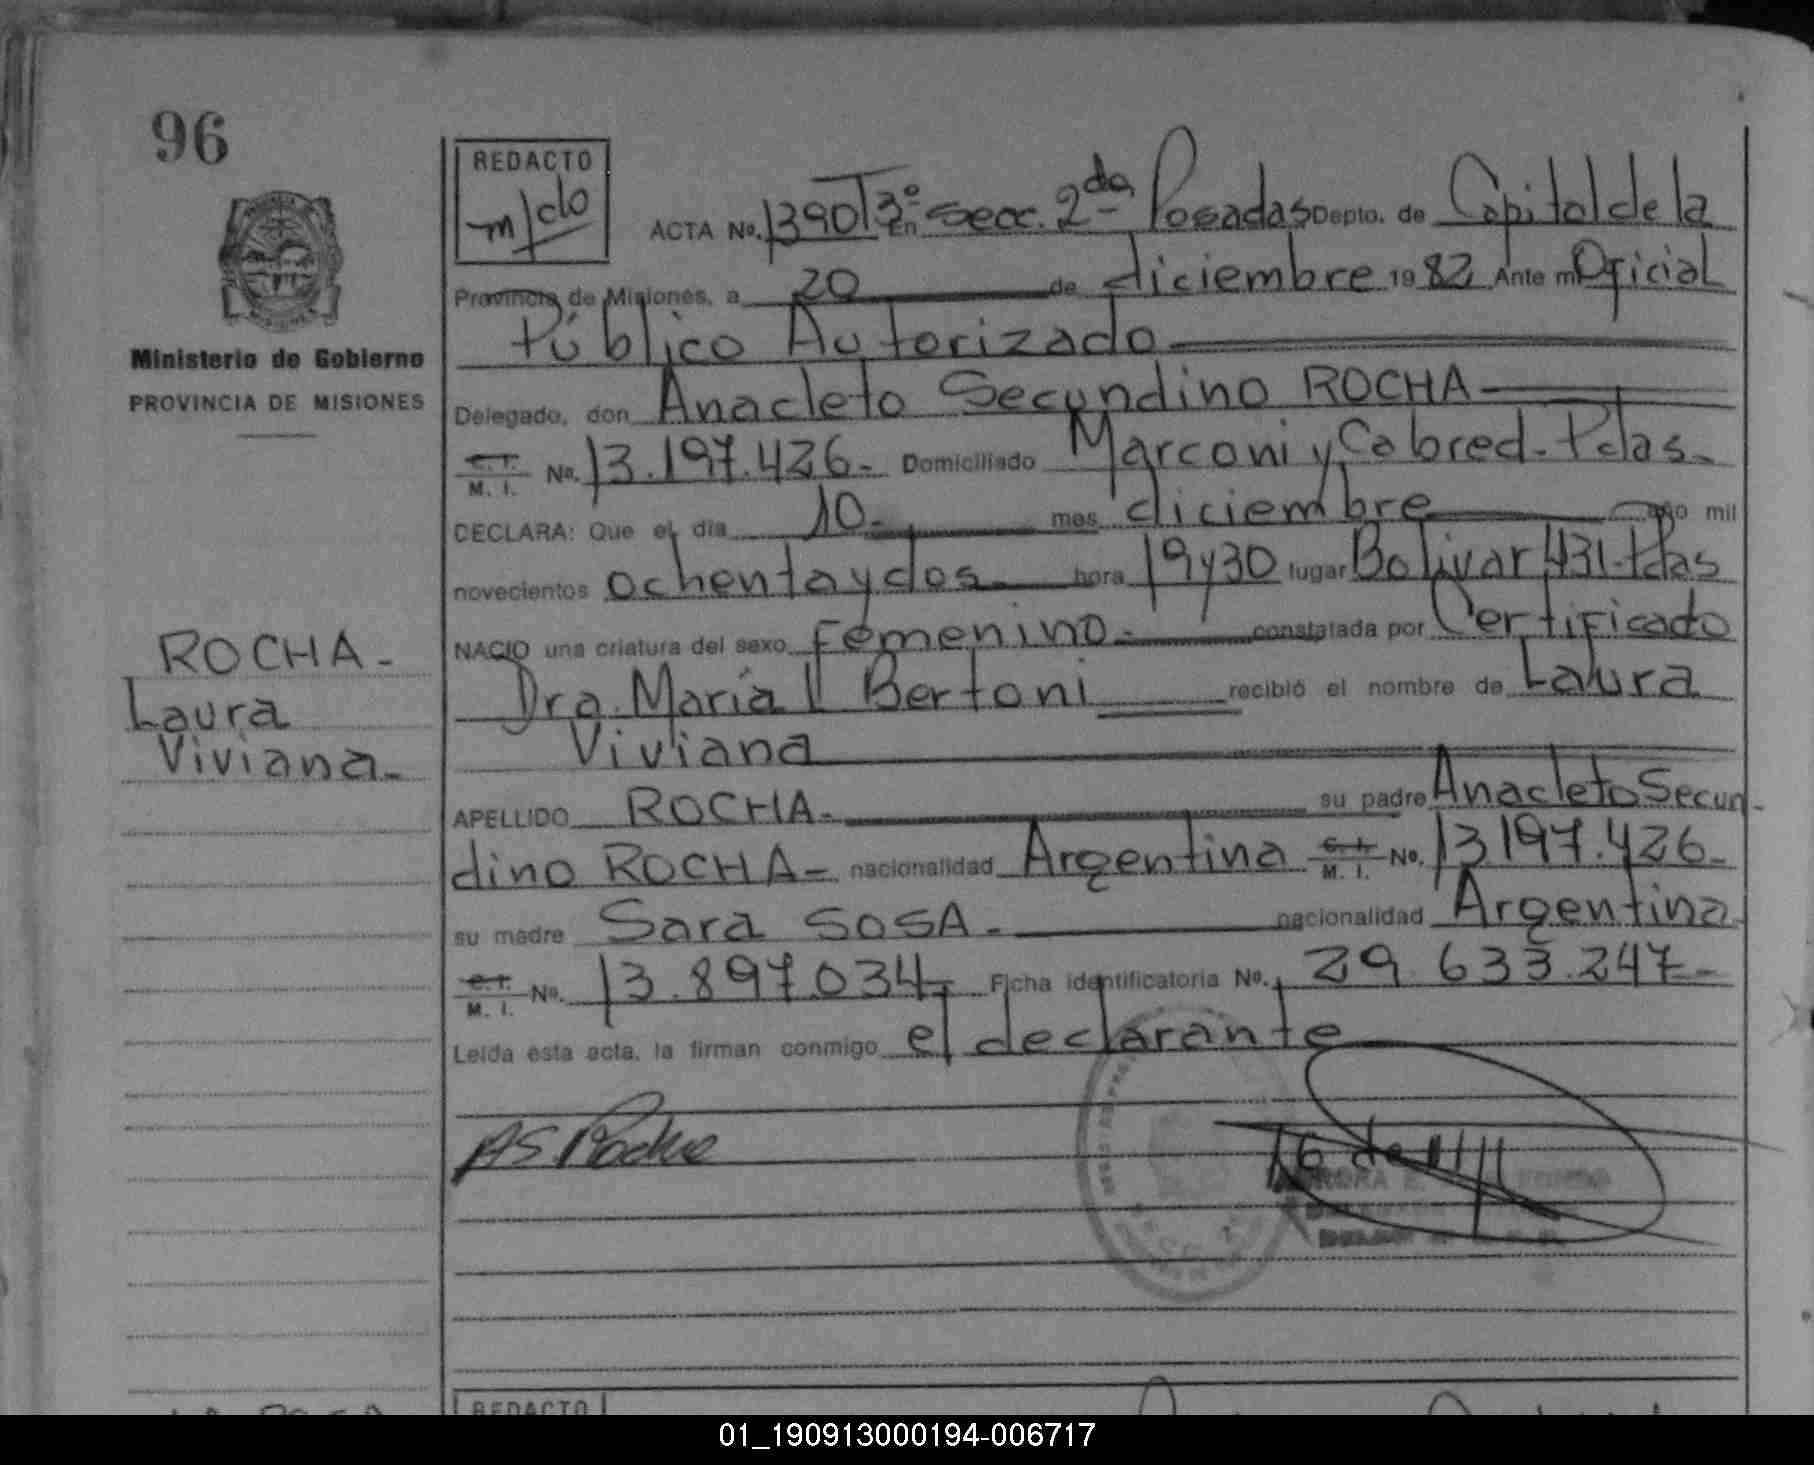 96
REDACTO
m/do
ACTA No. 1390 T3° En secc. 2da Posadas Depto. de Capital de la
Provincia de Misiones, a 20 de diciembre 1982 Ante mi Oficial
Público Autorizado
Ministerio de Gobierno
PROVINCIA DE MISIONES
Delegado, don Anacleto Secundino ROCHA
C. I. M. I. No. 13.197.426.- Domiciliado Marconi y Cabred.- Pdas.-
DECLARA: Que el dia 10.- mes diciembre año mil
novecientos ochenta y dos.- hora 19 y 30 lugar Bolivar 431-Pdas
NACIO una criatura del sexo femenino.- constatada por Certificado
Dra. María L Bertoni recibió el nombre de Laura
Viviana
ROCHA-
Laura
Viviana.-
APELLIDO ROCHA.- su padre Anacleto Secun-
dino ROCHA- nacionalidad Argentina C. I. M. I. No. 13.197.426.-
su madre Sara SOSA.- nacionalidad Argentina.
C. I. M. I. No. 13.897.034- Ficha identificatoria No. 29.633.247-
Leida esta acta, la firman conmigo el declarante
AS Rocha
REDACTO
01_190913000194-006717